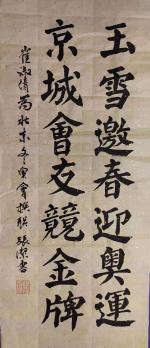 玉雪邀春迎奧運
京城會友競金牌
崔淑清為北京冬奧會撰联 張潔書